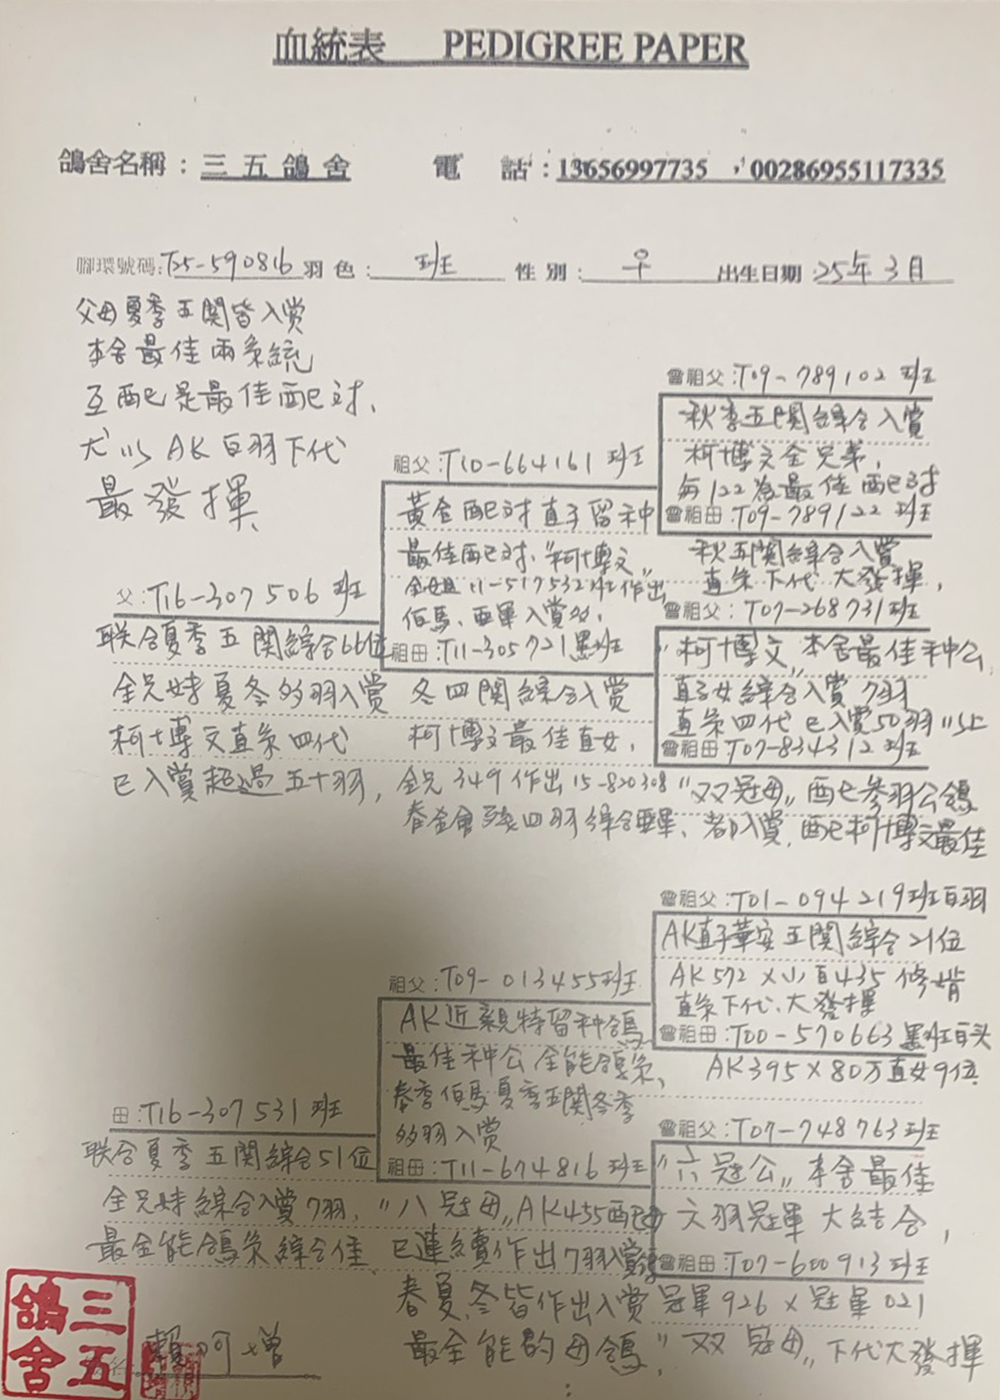 血統表 PEDIGREE PAPER
鴿舍名稱：三五鴿舍 電 話：13656997735 ，00286955117335
腳環號碼：T25-590816 羽色： 班 性別： ♀ 出生日期：25年3月
父母夏季五関皆入赏
本舍最佳兩系統
互配是最佳配对、
尤以AK白羽下代
最發揮、
父：T16-307506 班
联合夏季五関綜合66位
全兄妹夏冬多羽入赏
柯博文直系四代
已入赏超過五十羽，
祖父：T10-664161 班
黃金配对直子留种
最佳配对、"柯博文"
全姐11-517532班作出
伯馬、亜軍入賞多、
祖母：T11-305721黑班
冬四関綜合入赏
柯博文最佳直女，
全兄349作出15-820308
春金會 四羽綜合亜軍、
曾祖父：T09-789102 班
秋季五関綜合入賞
柯博文全兄弟，
与122為最佳配对
曾祖母：T09-789122 班
秋五関綜合入賞
直系下代大發揮，
曾祖父：T07-268731班
"柯博文"本舍最佳种公
直子女綜合入賞7羽
直系四代已入賞50羽以上
曾祖母：T07-834312班
"双冠母"配参羽公鴿
都入赏，配柯博文最佳
母：T16-307531 班
联合夏季五関綜合51位
全兄妹綜合入賞7羽，
最全能鴿系綜合佳
祖父：T09-013455班
AK近親特留种鴿
最佳种公全能鴿系，
春季伯馬夏季五関冬季
多羽入赏
祖母：T11-674816班
"八冠母"AK455配
已連續作出7羽入賞
春夏、冬皆作出入赏
最全能的母鴿，
曾祖父：T01-094219班白羽
AK直子華安五関綜合21位
AK572×小白435修
直系下代、大發揮
曾祖母：T00-570663黑班白头
AK395×80万直女9位
曾祖父：T07-748763班
"六冠公"本舍最佳
六羽冠軍大結合，
曾祖母：T07-600913班
冠軍926×冠軍021
"双冠母"下代大發揮
三五鴿舍
賴阿增